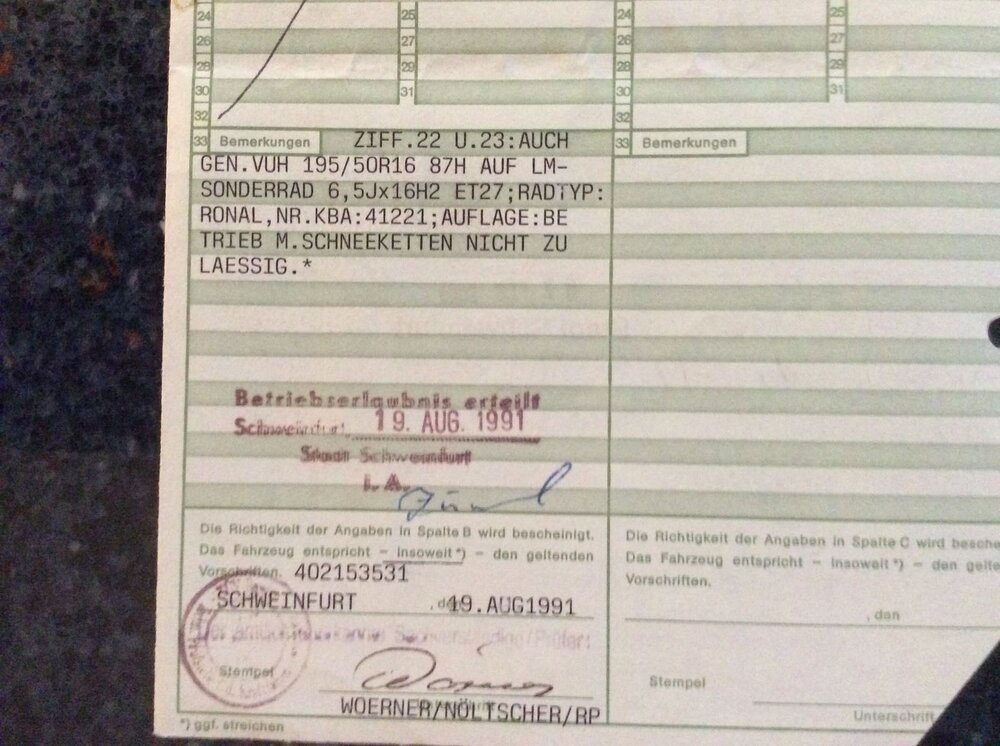 24 25 24 25
26 27 26 27
28 29 28 29
30 31 30 31
32 32
33 Bemerkungen ZIFF.22 U.23:AUCH
GEN.VUH 195/50R16 87H AUF LM-
SONDERRAD 6,5Jx16H2 ET27;RADTYP:
RONAL,NR.KBA:41221;AUFLAGE:BE
TRIEB M.SCHNEEKETTEN NICHT ZU
LAESSIG.*
Betriebserlaubnis erteilt
Schweinfurt, 19. AUG. 1991
Stadt Schweinfurt
I. A.
Die Richtigkeit der Angaben in Spalte B wird bescheinigt.
Das Fahrzeug entspricht – insoweit *) – den geltenden
Vorschriften. 402153531
SCHWEINFURT , den 19.AUG1991
Stempel
WOERNER/NÖLTSCHER/RP
*) ggf. streichen
33 Bemerkungen
Die Richtigkeit der Angaben in Spalte C wird besche
Das Fahrzeug entspricht – insoweit *) – den gelte
Vorschriften.
, den
Stempel
Unterschrift